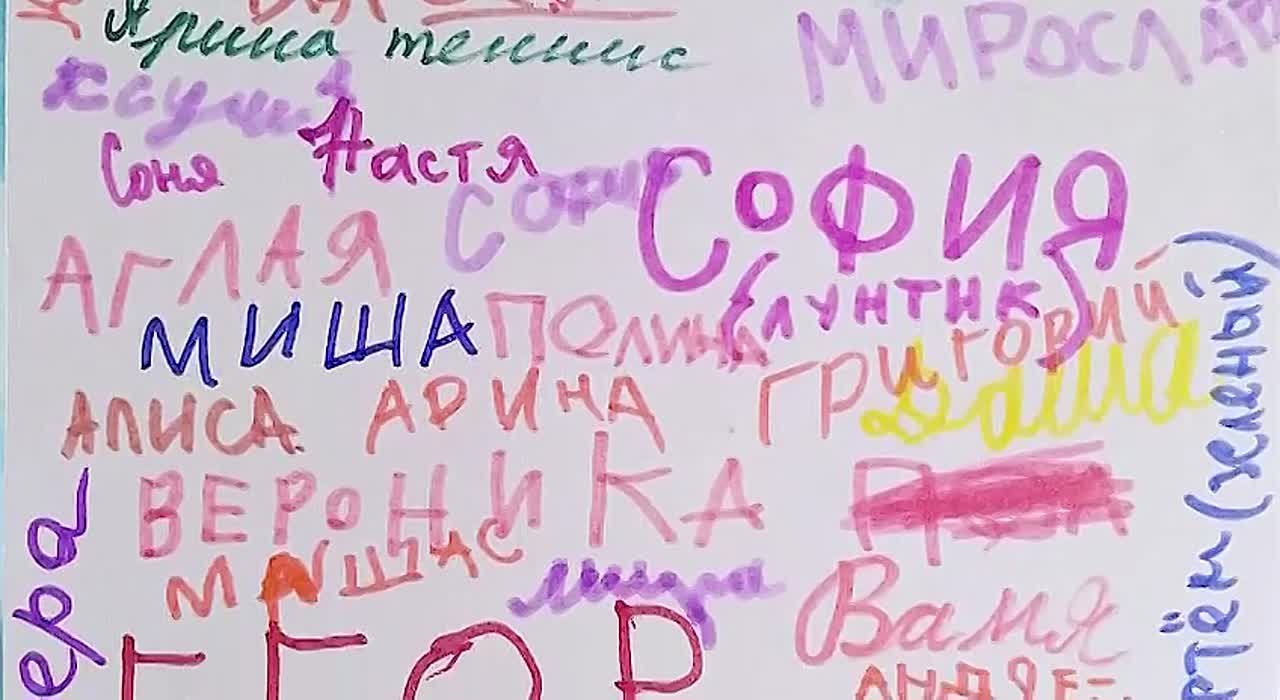 Арина теннис
МИРОСЛАВ
Ксуша
Соня Настя
София СОФИЯ
(ЛУНТИК)
АГЛАЯ
МИША ПОЛИНА ГРИГОРИЙ
Даша
АЛИСА АРИНА
ВЕРОНИКА
МАШ
Ваня
ЕГОР
АНДРЕ
ера
ртём (зеленый)